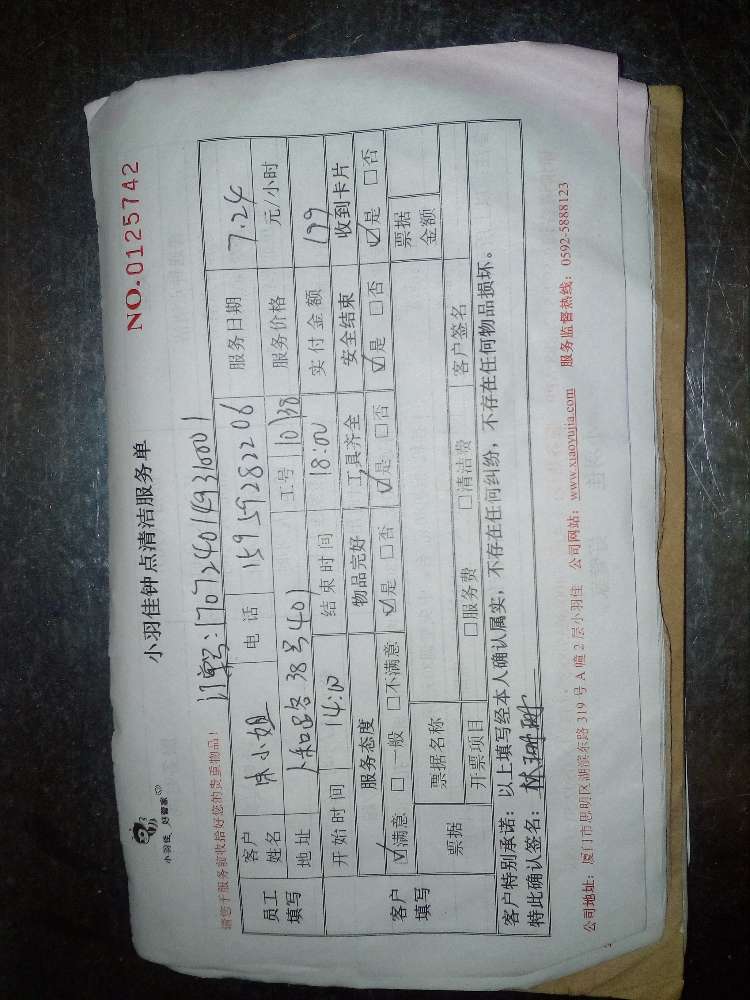 小羽佳 好管家
小羽佳钟点清洁服务单
NO.0125742
请您于服务前收拾好您的贵重物品!
订单号:1707240149310001
员工填写
客户姓名 小姐 电话 15959282206 服务日期 7.24
地址 路38号401 工号 1038 服务价格 元/小时
开始时间 14:00 结束时间 18:00 实付金额 199
客户填写
服务态度 物品完好 工具齐全 安全结束 收到卡片
☑满意 □一般 □不满意 ☑是 □否 ☑是 □否 ☑是 □否 ☑是 □否
票据 票据名称 票据金额
开票项目 □服务费 □清洁费 客户签名
客户特别承诺:以上填写经本人确认属实,不存在任何纠纷,不存在任何物品损坏。
特此确认签名:林
公司地址:厦门市思明区湖滨东路319号A幢2层小羽佳 公司网站:www.xiaoyujia.com 服务监督热线:0592-5888123